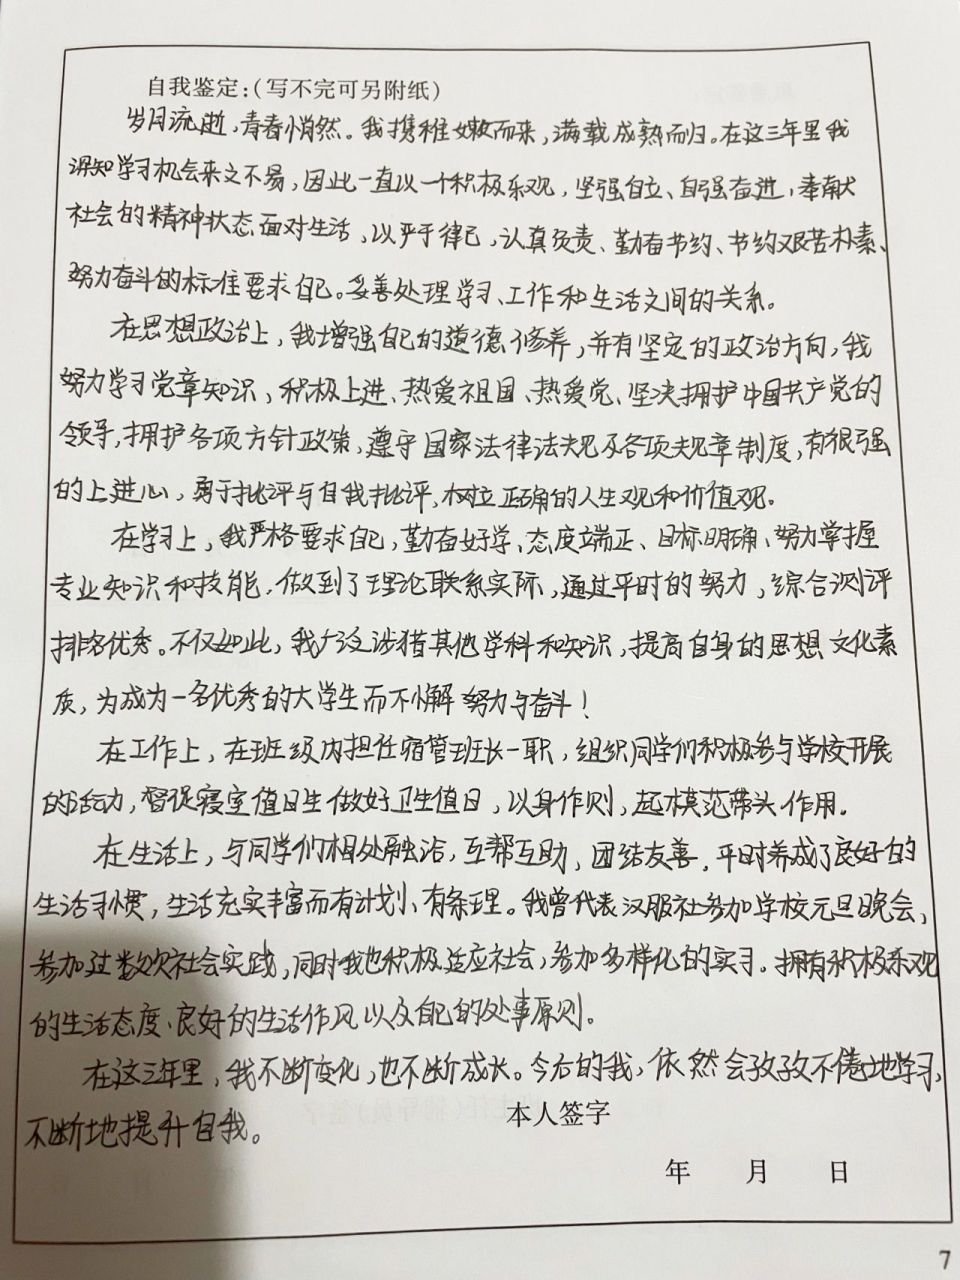 自我鉴定：（写不完可另附纸）
岁月流逝，青春悄然。我携稚嫩而来，满载成熟而归。在这三年里我
深知学习机会来之不易，因此一直以一个积极乐观，坚强自立、自强奋进，奉献
社会的精神状态面对生活，以严于律己，认真负责、勤奋节约、节约艰苦朴素、
努力奋斗的标准要求自己。妥善处理学习、工作和生活之间的关系。
在思想政治上，我增强自己的道德修养，并有坚定的政治方向，我
努力学习党章知识，积极上进、热爱祖国、热爱党、坚决拥护中国共产党的
领导，拥护各项方针政策，遵守国家法律法规及各项规章制度，有很强
的上进心，勇于批评与自我批评，树立正确的人生观和价值观。
在学习上，我严格要求自己，勤奋好学、态度端正、目标明确、努力掌握
专业知识和技能，做到了理论联系实际，通过平时的努力，综合测评
排名优秀。不仅如此，我广泛涉猎其他学科和知识，提高自身的思想文化素
质，为成为一名优秀的大学生而不懈努力与奋斗！
在工作上，在班级内担任宿管班长一职，组织同学们积极参与学校开展
的活动，督促寝室值日生做好卫生值日，以身作则，起模范带头作用。
在生活上，与同学们相处融洽，互帮互助，团结友善，平时养成了良好的
生活习惯，生活充实丰富而有计划、有条理。我曾代表汉服社参加学校元旦晚会，
参加过数次社会实践，同时我也积极适应社会，参加多样化的实习。拥有积极乐观
的生活态度、良好的生活作风以及自己的处事原则。
在这三年里，我不断变化，也不断成长。今后的我，依然会孜孜不倦地学习，
不断地提升自我。
本人签字
年 月 日
7